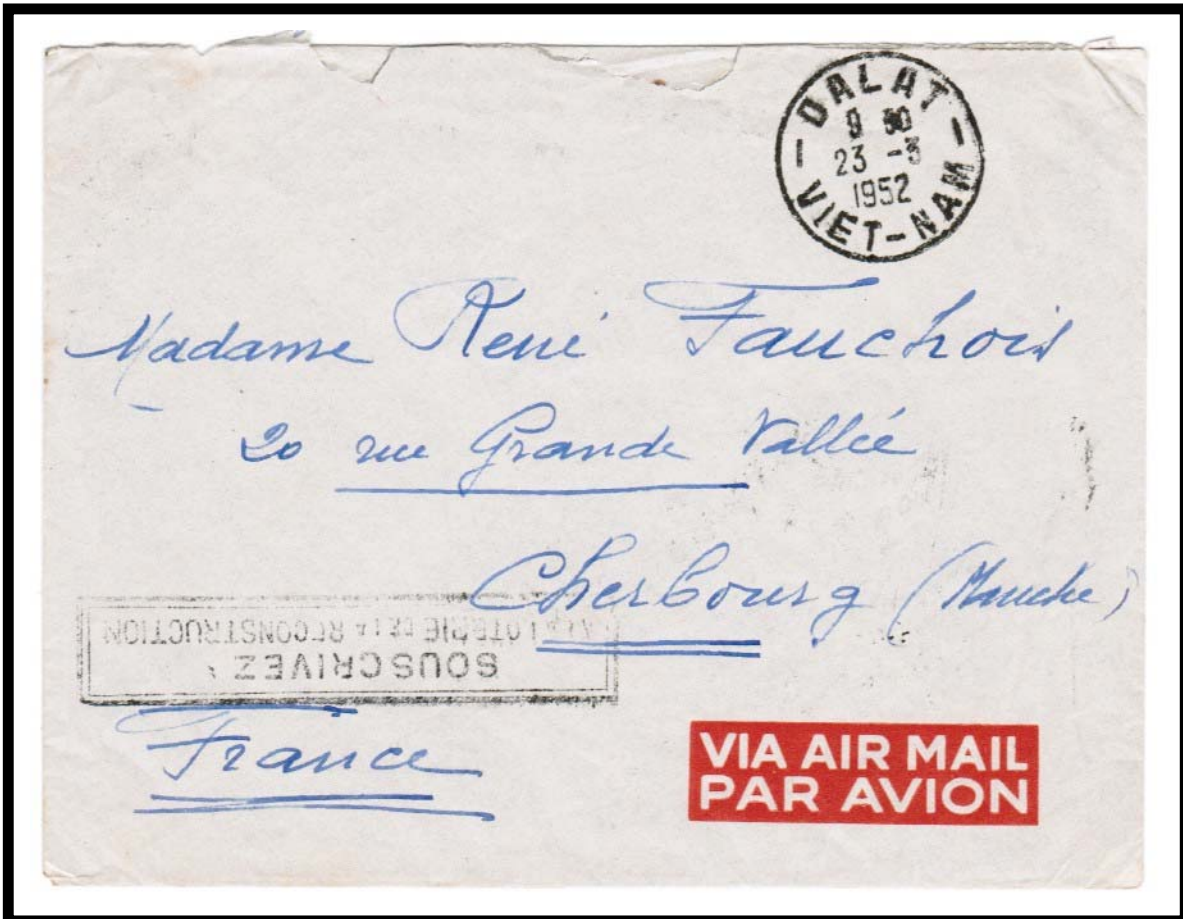 DALAT
9 30
23 -3
1952
VIET-NAM
Madame René Fauchois
20 rue Grande Vallée
Cherbourg (Manche)
SOUSCRIVEZ
A LA LOTERIE DE LA RECONSTRUCTION
France
VIA AIR MAIL
PAR AVION